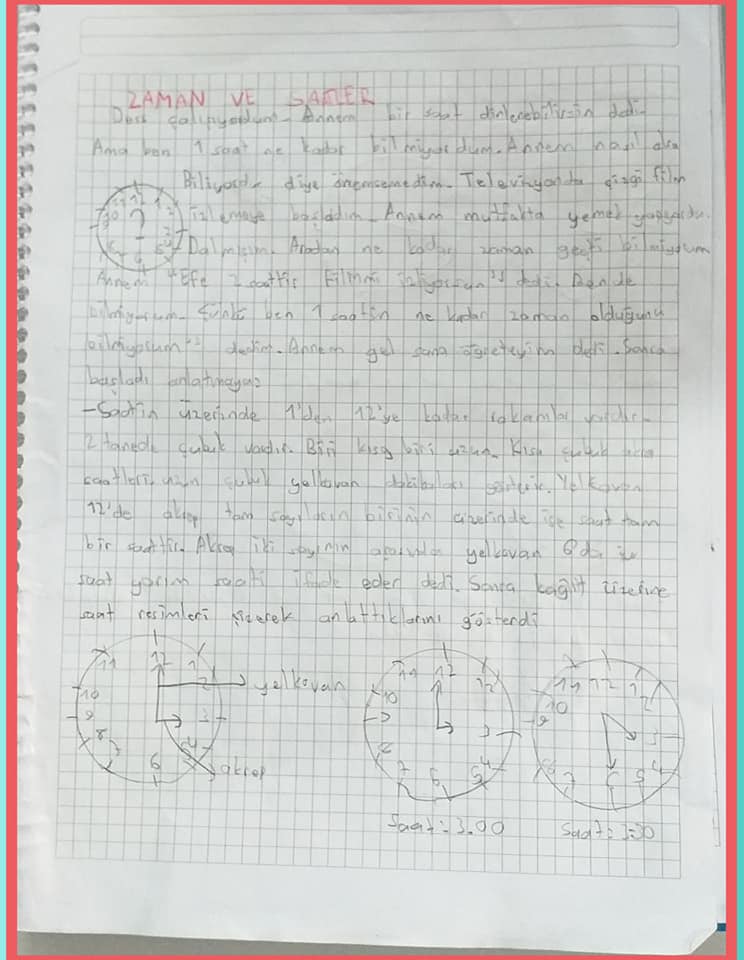 ZAMAN VE SAATLER
Ders çalışıyordum. Annem bir saat dinlenebilirsin dedi.
Ama ben 1 saat ne kadar bilmiyordum. Annem nasıl olsa
Biliyordur diye önemsemedim. Televizyonda çizgi film
izlemeye başladım. Annem mutfakta yemek yapıyordu.
Dalmışım. Aradan ne kadar zaman geçti bilmiyorum
Annem "Efe 2 saattir filmi izliyorsun" dedi. Bende
bilmiyorum. Çünkü ben 1 saatin ne kadar zaman olduğunu
bilmiyorum" dedim. Annem gel sana öğreteyim dedi. Sonra
başladı anlatmaya:
-Saatin üzerinde 1'den 12'ye kadar rakamlar vardır.
2 tanede çubuk vardır. Biri kısa biri uzun. Kısa çubuk
saatleri uzun çubuk yelkovan dakikaları gösterir. Yelkovan
12'de akrep tam sayıların birinin üzerinde ise saat tam
bir saattir. Akrep iki sayının arasında yelkovan 6'da ise
saat yarım saati ifade eder dedi. Sonra kağıt üzerine
saat resimleri çizerek anlattıklarını gösterdi
11 12 1 2 3 4 6 7 8 9 10
yelkovan
akrep
11 12 1 2 3 4 5 6 7 8 9 10
Saat: 3.00
11 12 1 2 3 4 5 6 7 8 9 10
Saat: 3:30